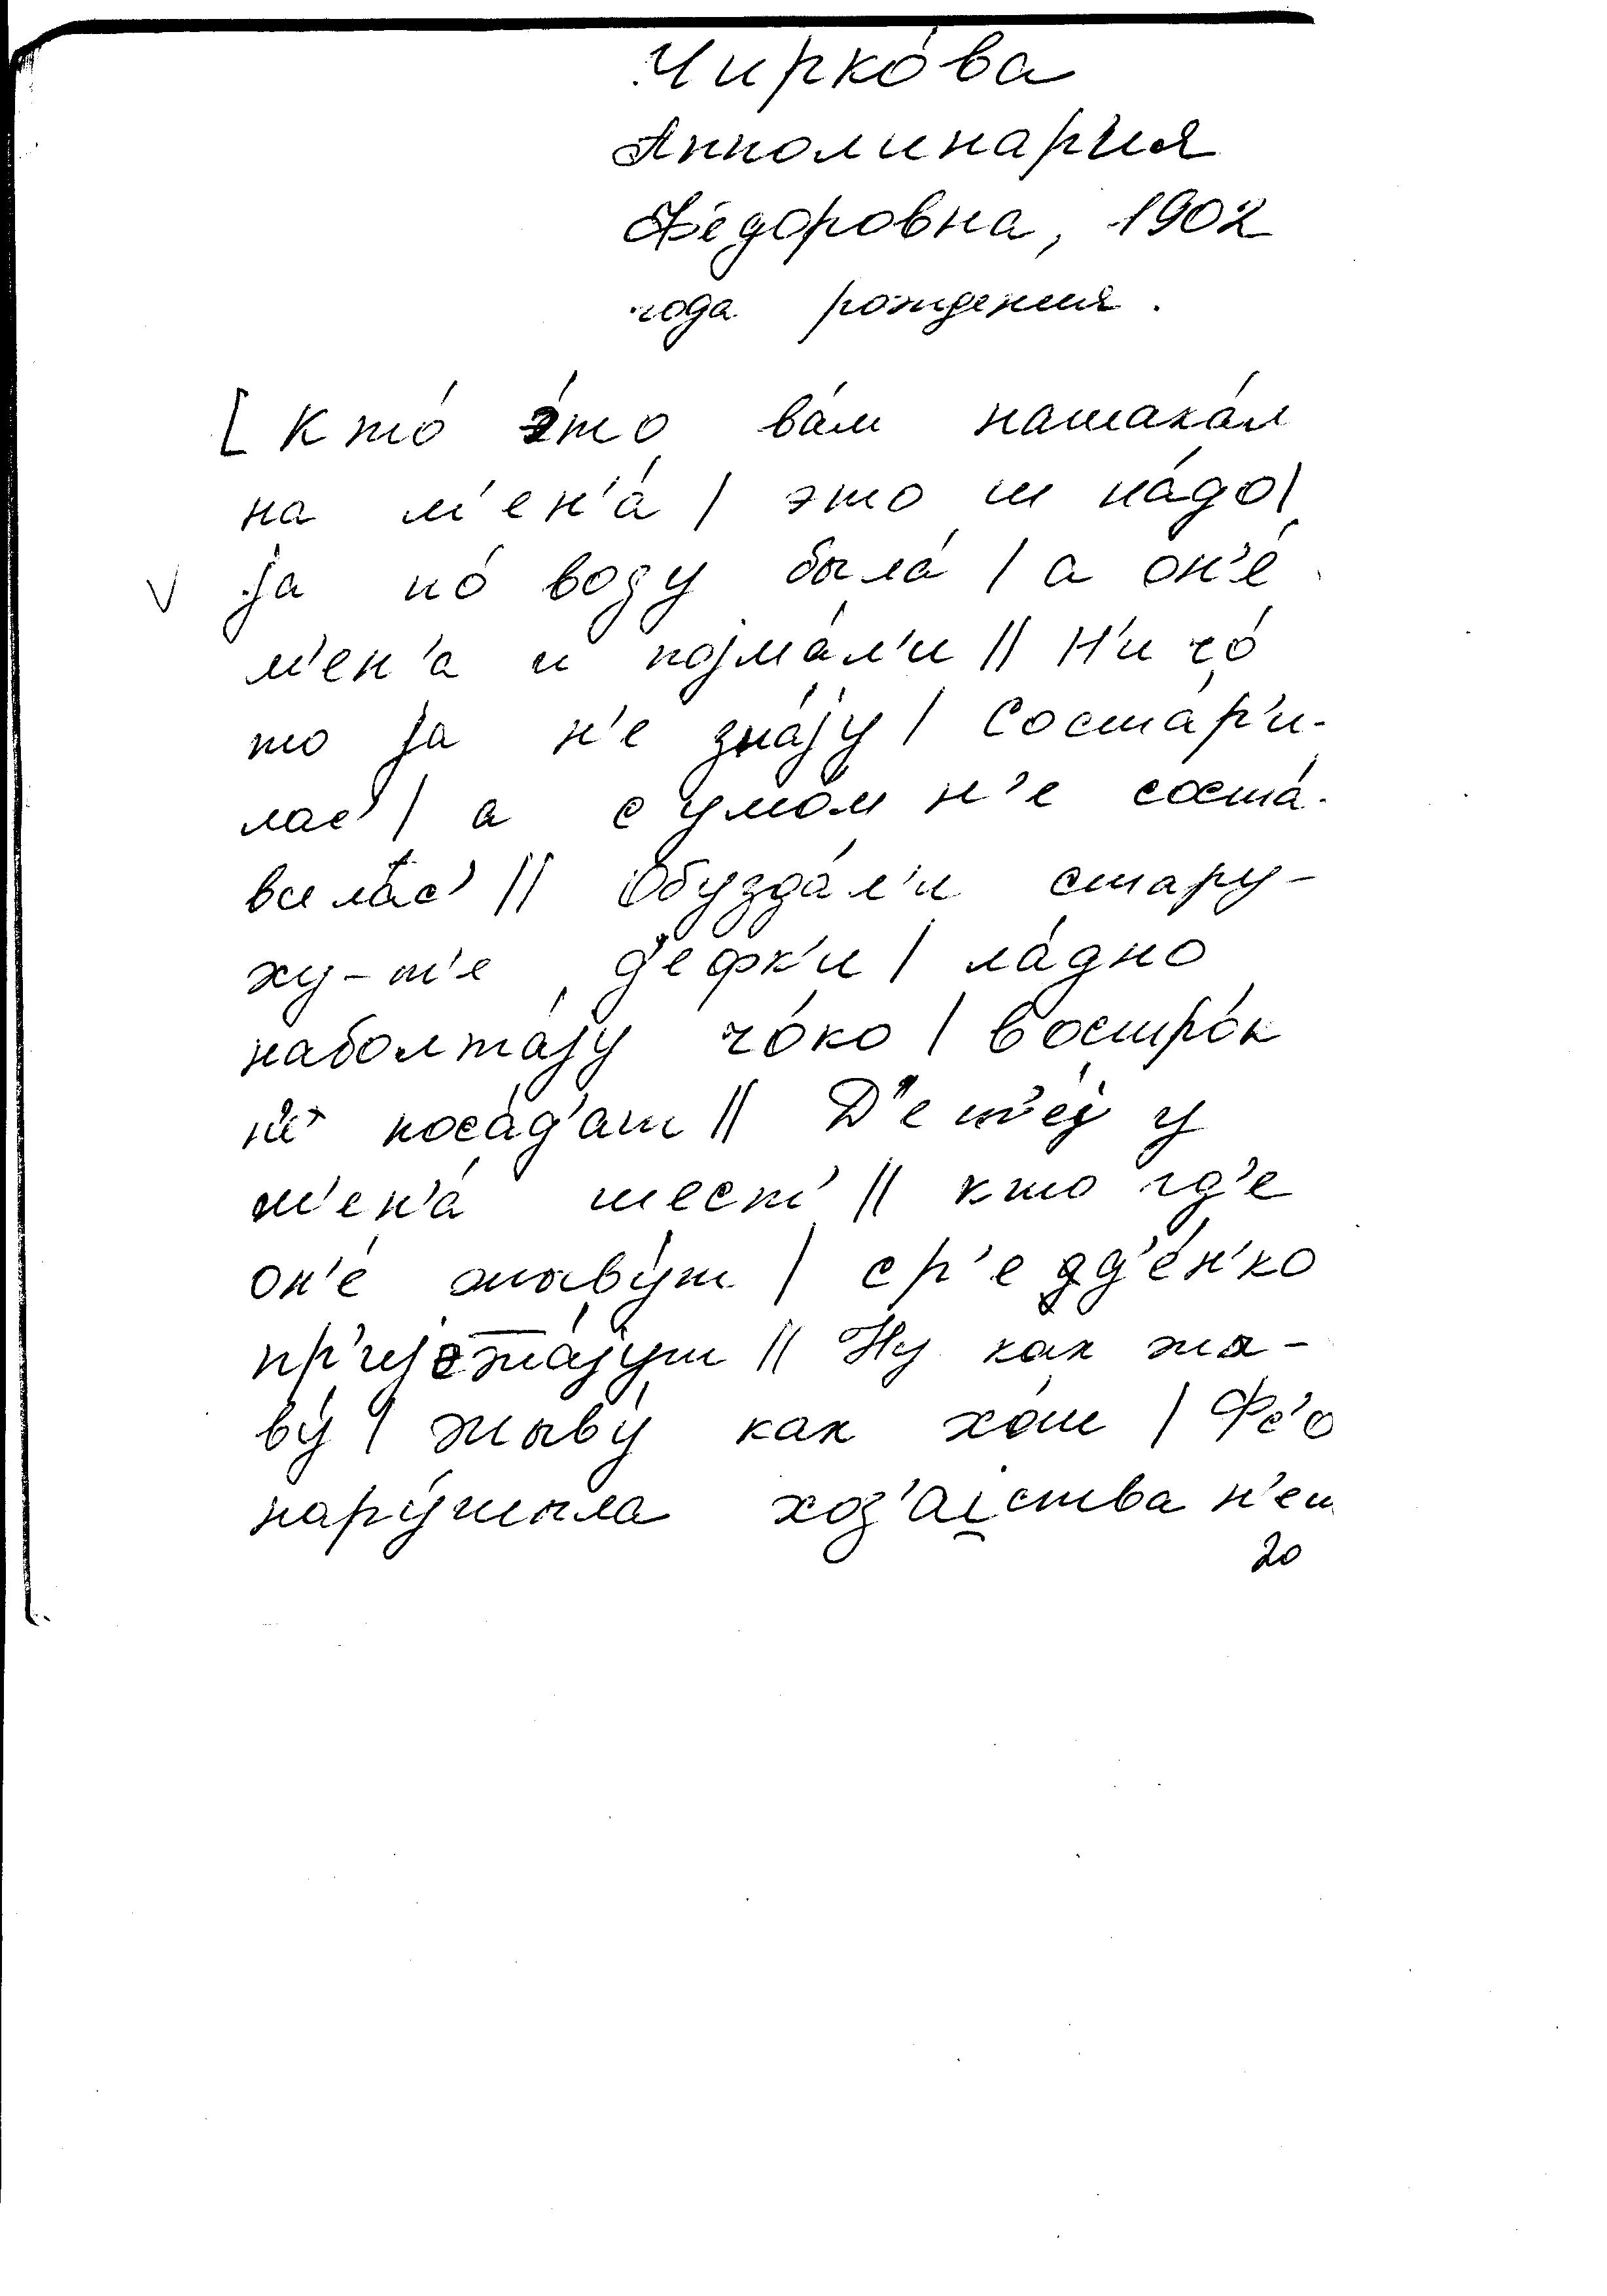 Чирко́ва
Апполинария
Фёдоровна, 1902
года рождения.
[ Кто́ э́то ва́м натака́л
на м'ен'а́ | это ш на́до |
V jа по́ воду была́ | а он'е́
м'ен'а и поjма́л'и || Н'и чо́
то jа н'е зна́jу | Соста́р'и-
лас' | а с умо́м н'е соста́-
вилас' || Обузда́л'и стару-
ху-т'е д'е́фк'и | ла́дно
наболта́jу чо́ко | в остро́к
н'е поса́д'ат || Д'ет'е́j у
м'ен'а́ шест' || кто гд'е
он'е́ жыву́т | ср'едд'е́н'ко
пр'иjежа́jут || Ну как жы-
ву́ | жыву́ как хо́ш | Фс'о
нару́шыла хоз'аiства н'ет
20